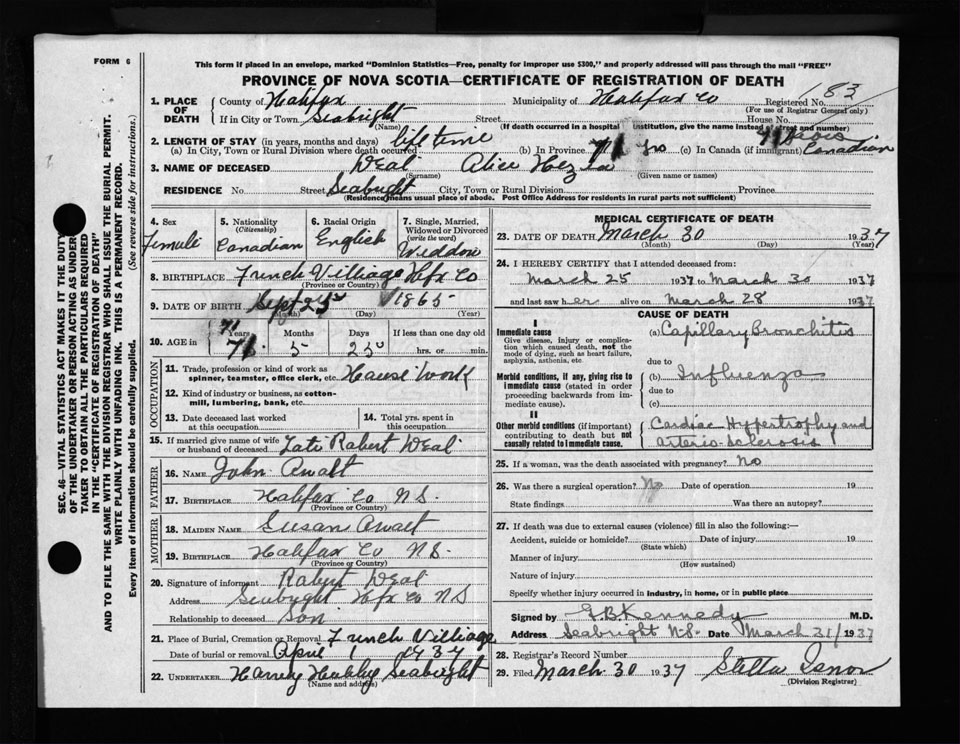 FORM 6
This form if placed in an envelope, marked "Dominion Statistics—Free, penalty for improper use $300," and properly addressed will pass through the mail "FREE"
PROVINCE OF NOVA SCOTIA—CERTIFICATE OF REGISTRATION OF DEATH
SEC. 46—VITAL STATISTICS ACT MAKES IT THE DUTY
OF THE UNDERTAKER OR PERSON ACTING AS UNDER-
TAKER TO OBTAIN ALL THE PARTICULARS REQUIRED
IN THE "CERTIFICATE OF REGISTRATION OF DEATH"
AND TO FILE THE SAME WITH THE DIVISION REGISTRAR WHO SHALL ISSUE THE BURIAL PERMIT.
WRITE PLAINLY WITH UNFADING INK. THIS IS A PERMANENT RECORD.
Every item of information should be carefully supplied. (See reverse side for instructions.)
1. PLACE OF DEATH County of Halifax Municipality of Halifax Co Registered No. 183
(For use of Registrar General only)
If in City or Town Seabright Street House No.
(Name) (If death occurred in a hospital institution, give the name instead of street and number)
2. LENGTH OF STAY (in years, months and days)
(a) In City, Town or Rural Division where death occurred life time (b) In Province 71 yrs (c) In Canada (if immigrant) Canadian
3. NAME OF DECEASED Weal Alice
(Surname) (Given name or names)
RESIDENCE No. Street Seabright City, Town or Rural Division Province
(Residence means usual place of abode. Post Office Address for Rural parts not sufficient)
4. Sex Female
5. Nationality (Citizenship) Canadian
6. Racial Origin English
7. Single, Married, Widowed or Divorced (write the word) Widdow
8. BIRTHPLACE French Villiage Hfx Co
(Province or Country)
9. DATE OF BIRTH Sept 1865
(Month) (Day) (Year)
10. AGE in Years 71 Months 5 Days If less than one day old hrs. or min.
OCCUPATION
11. Trade, profession or kind of work as spinner, teamster, office clerk, etc. House Work
12. Kind of industry or business, as cotton-mill, lumbering, bank, etc.
13. Date deceased last worked at this occupation
14. Total yrs. spent in this occupation
15. If married give name of wife or husband of deceased Late Robert Weal
FATHER
16. NAME John Awalt
17. BIRTHPLACE Halifax Co N S.
(Province or Country)
MOTHER
18. MAIDEN NAME Susan Awalt
19. BIRTHPLACE Halifax Co N S.
(Province or Country)
20. Signature of informant Robert Weal
Address Seabright Hfx Co N S
Relationship to deceased Son
21. Place of Burial, Cremation or Removal French Villiage
Date of burial or removal April 1 1937
22. UNDERTAKER Harvey Hubley Seabright
(Name and address)
MEDICAL CERTIFICATE OF DEATH
23. DATE OF DEATH March 30 1937
(Month) (Day) (Year)
24. I HEREBY CERTIFY that I attended deceased from:
March 25 1937 to March 30 1937
and last saw her alive on March 28 1937
CAUSE OF DEATH
I
Immediate cause (a) Capillary Bronchitis
Give disease, injury or complication which caused death, not the mode of dying, such as heart failure, asphyxia, asthenia, etc.
due to
Morbid conditions, if any, giving rise to immediate cause (stated in order proceeding backwards from immediate cause). (b) Influenza
due to
(c)
II
Other morbid conditions (if important) contributing to death but not causally related to immediate cause. Cardiac Hypertrophy and
arterio-sclerosis
25. If a woman, was the death associated with pregnancy? No
26. Was there a surgical operation? No Date of operation 19
State findings Was there an autopsy?
27. If death was due to external causes (violence) fill in also the following:—
Accident, suicide or homicide? Date of injury 19
(State which)
Manner of injury
(How sustained)
Nature of injury
Specify whether injury occurred in industry, in home, or in public place
Signed by G.B. Kennedy M.D.
Address Seabright N.S. Date March 31/1937
28. Registrar's Record Number
29. Filed March 30 1937 Stella Isnor
(Division Registrar)